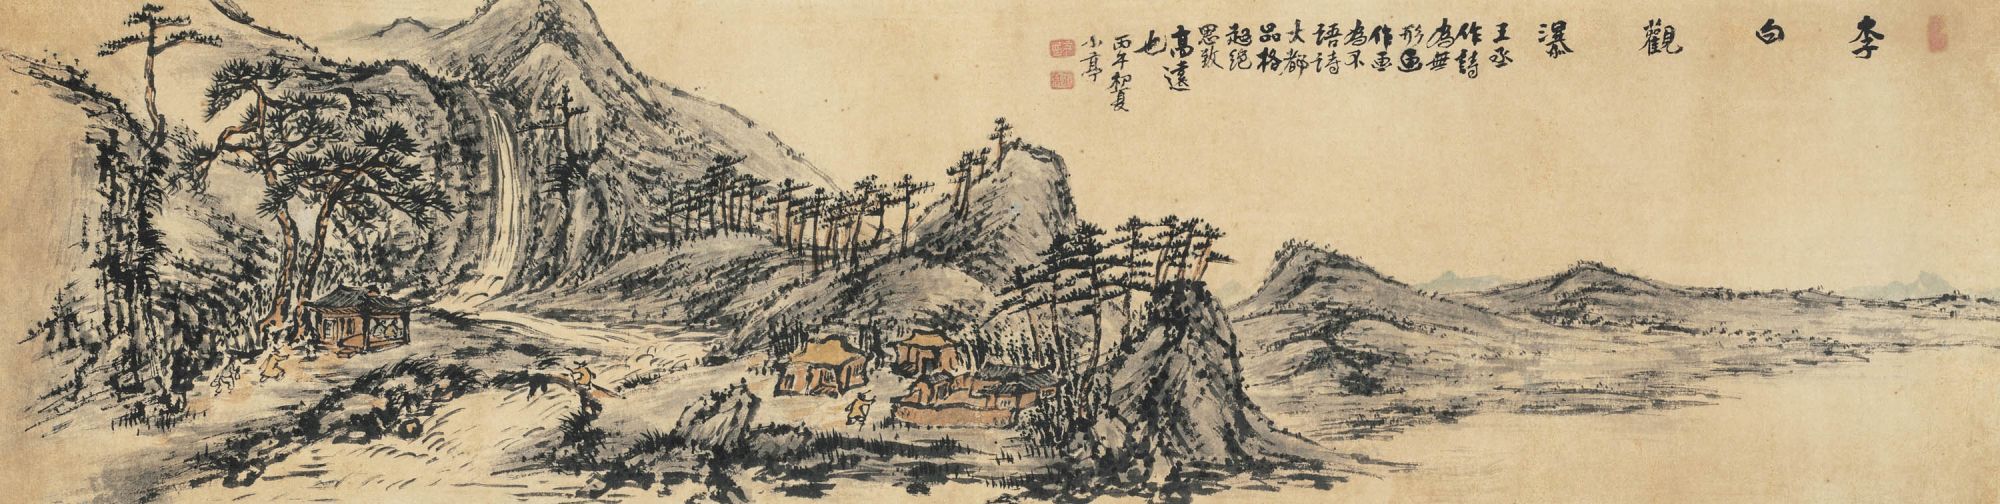 李白觀瀑
王丞
作詩
為無
形画
作画
為不
語詩
大都
品格
超絕
思致
高遠
也
丙午初夏
小亭